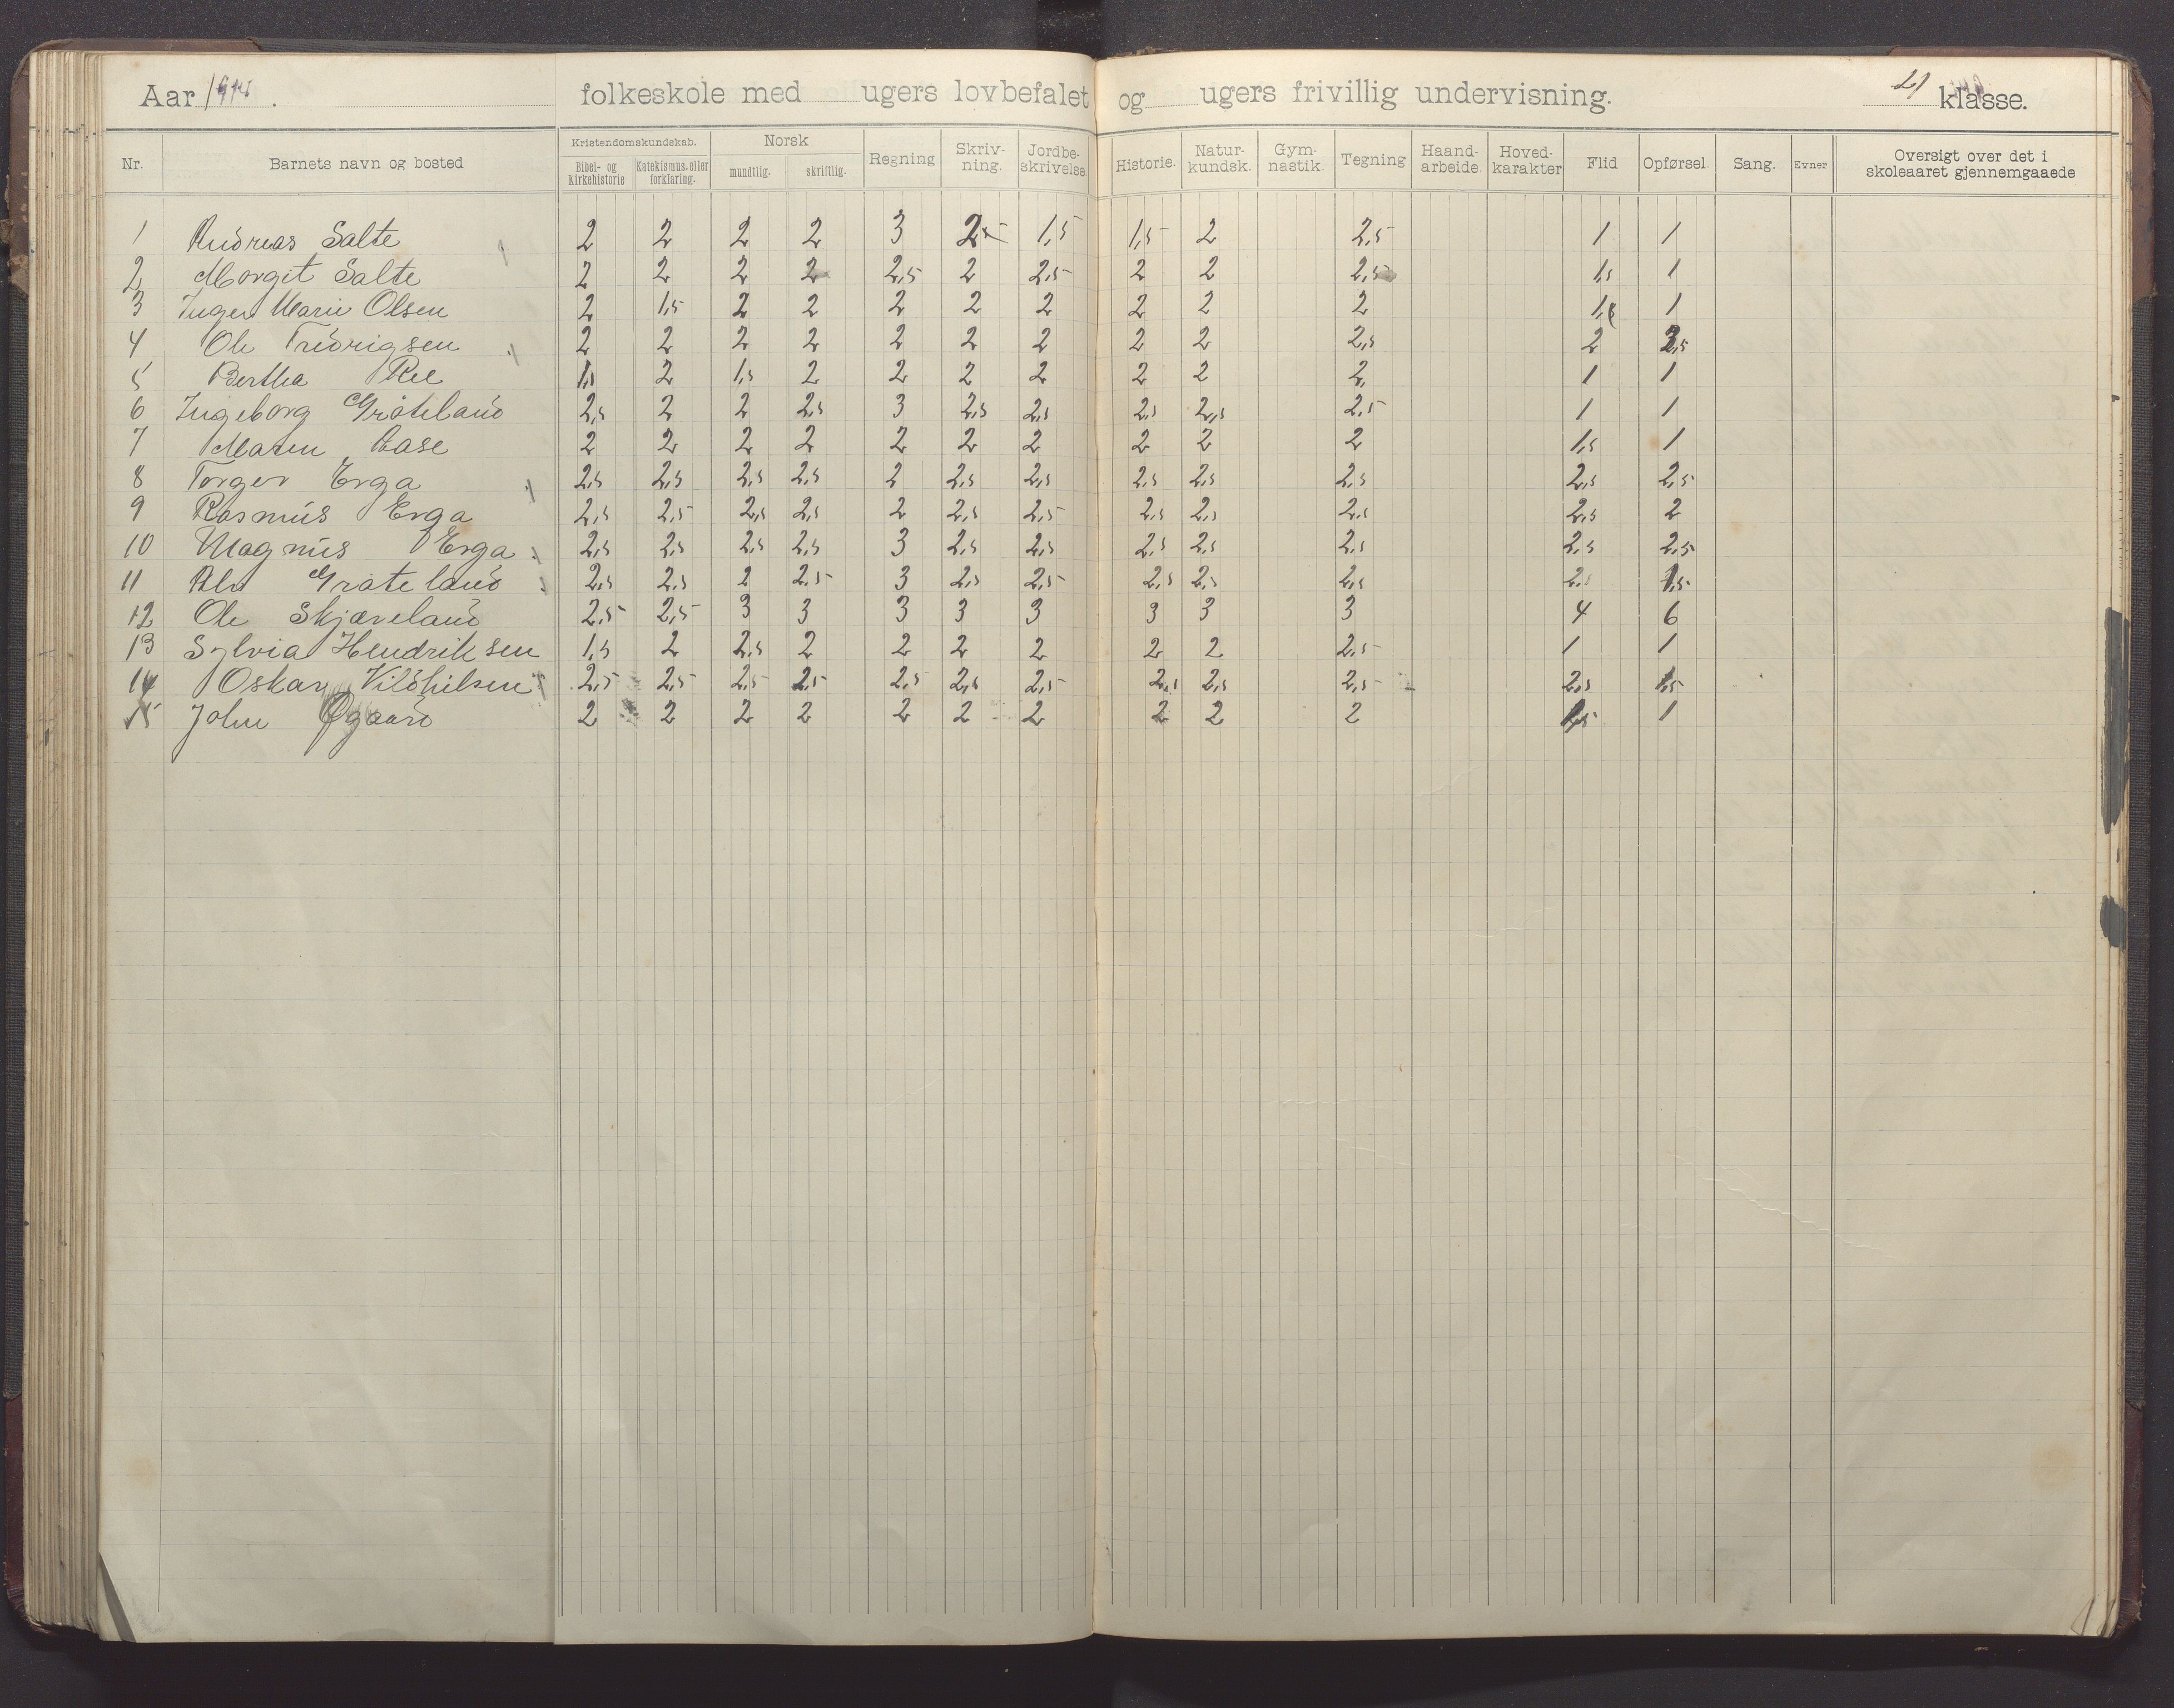 Aar folkeskole med ugers lovbefalet og ugers frivillig undervisning. klasse.
Nr. Barnets navn og bosted Kristendomskundskab. Bibel- og kirkehistorie Katekismus. eller forklaring. Norsk mundtlig. skriftlig. Regning Skriv-ning. Jordbe-skrivelse. Historie. Natur-kundsk. Gym-nastik. Tegning Haand-arbeide. Hoved-karakter Flid Opførsel. Sang. Evner Oversigt over det i skoleaaret gjennemgaaede
1 Andreas Salte 2 2 2 2 3 1,5 1,5 2 2,5 1 1
2 Margit Salte 2 2 2 2 2,5 2 2,5 2 2 2,5 1,5 1
3 Inger Marie Olsen 2 1,5 2 2 2 2 2 2 2 2 1
4 Ole Fredrigsen 2 2 2 2 2 2 2 2 2 2,5 2
5 Bertha Ree 1,5 2 1,5 2 2 2 2 2 2 2, 1 1
6 Ingeborg Grøteland 2,5 2 2 2,5 3 2,5 2,5 2,5 2,5 2,5 1 1
7 Maren Aase 2 2 2 2 2 2 2 2 2 2 1,5 1
8 Torger Erga 2,5 2,5 2,5 2,5 2 2,5 2,5 2,5 2,5 2,5 2,5 2,5
9 Rasmus Erga 2,5 2,5 2,5 2,5 2 2,5 2,5 2,5 2,5 2,5 2,5 2
10 Magnus Erga 2,5 2,5 2,5 2,5 3 2,5 2,5 2,5 2,5 2,5 2,5 2,5
11 Grøteland 2,5 2,5 2 2,5 3 2,5 2,5 2,5 2,5 2,5 2,5 1,5
12 Ole Skjæveland 2,5 2,5 3 3 3 3 3 3 3 3 4 6
13 Sylvia Hendriksen 1,5 2 2,5 2 2 2 2 2 2 2,5 1 1
14 Oskar Vildhilsen 2,5 2,5 2,5 2,5 2,5 2,5 2,5 2,5 2,5 2,5 2,5 1,5
15 John Øgaard 2 2 2 2 2 2 2 2 2 2 1,5 1